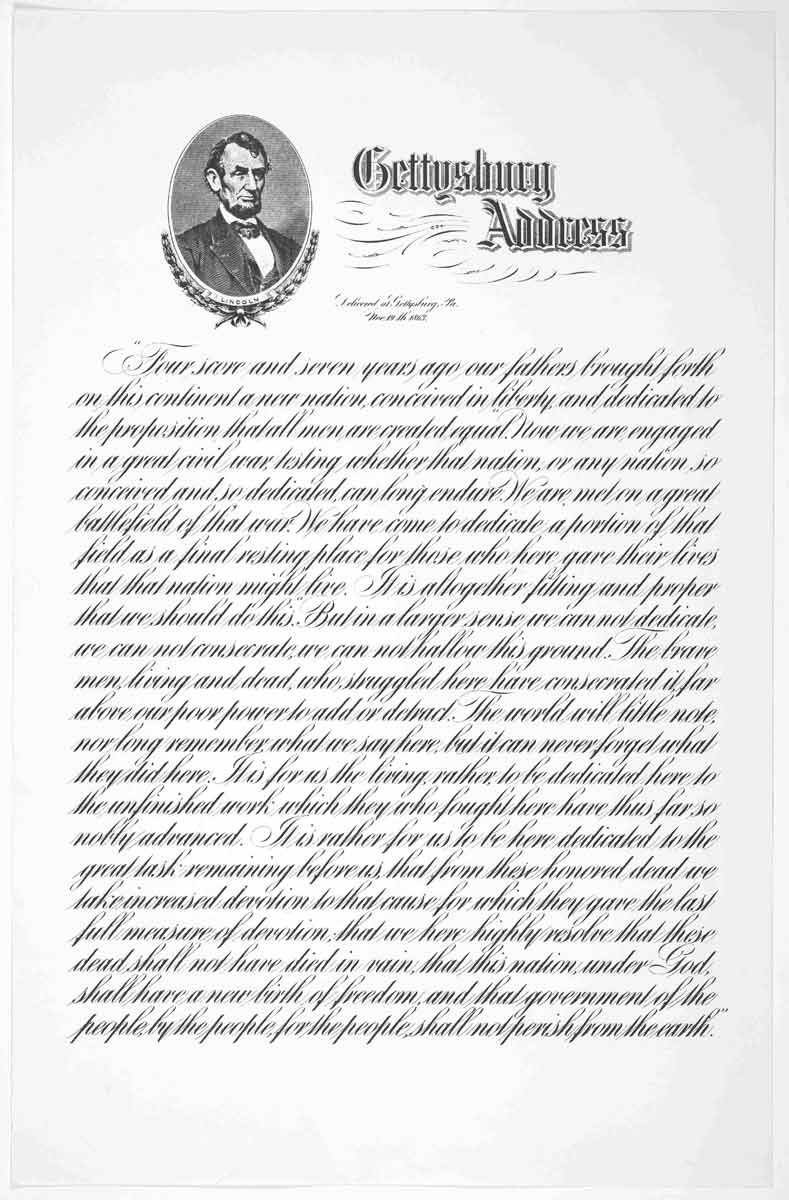 LINCOLN
Gettysburg
Address
Delivered at Gettysburg, Pa.
Nov. 19th 1863.
"Four score and seven years ago our fathers brought forth
on this continent a new nation, conceived in liberty, and dedicated to
the proposition that "all men are created equal." Now we are engaged
in a great civil war, testing whether that nation, or any nation, so
conceived and so dedicated, can long endure. We are met on a great
battlefield of that war. We have come to dedicate a portion of that
field as a final resting place for those who here gave their lives
that that nation might live. It is altogether fitting and proper
that we should do this. But in a larger sense, we can not dedicate,
we can not consecrate, we can not hallow this ground. The brave
men, living and dead, who struggled here have consecrated it, far
above our poor power to add or detract. The world will little note,
nor long remember, what we say here, but it can never forget what
they did here. It is for us the living, rather, to be dedicated here to
the unfinished work which they who fought here have thus far so
nobly advanced. It is rather for us to be here dedicated to the
great task remaining before us, that from these honored dead we
take increased devotion to that cause for which they gave the last
full measure of devotion; that we here highly resolve that these
dead shall not have died in vain, that this nation, under God,
shall have a new birth of freedom, and that government of the
people, by the people, for the people, shall not perish from the earth."